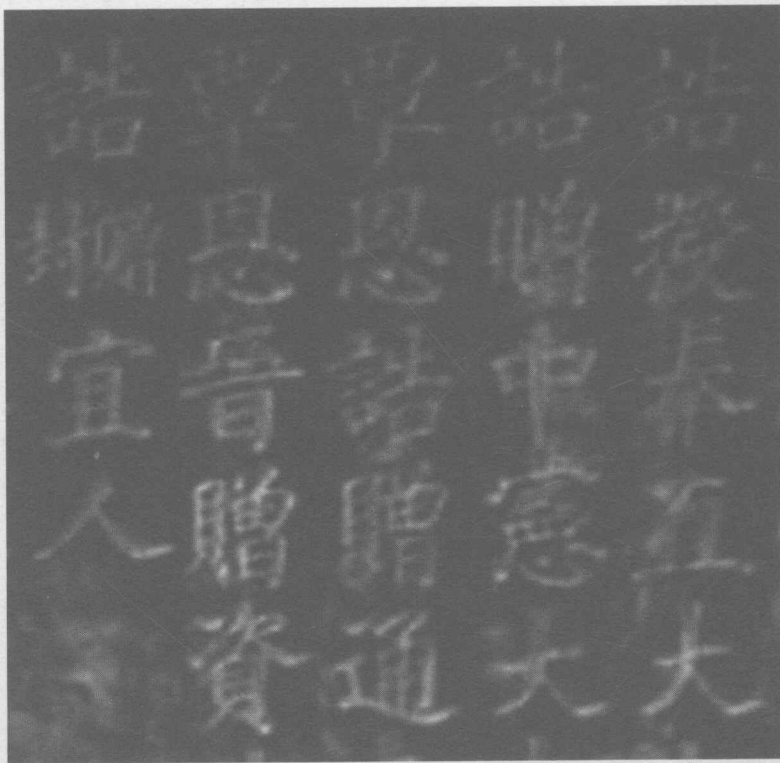 誥授奉直大
誥贈中憲大
覃恩誥贈通
覃恩晉贈資
誥宜人